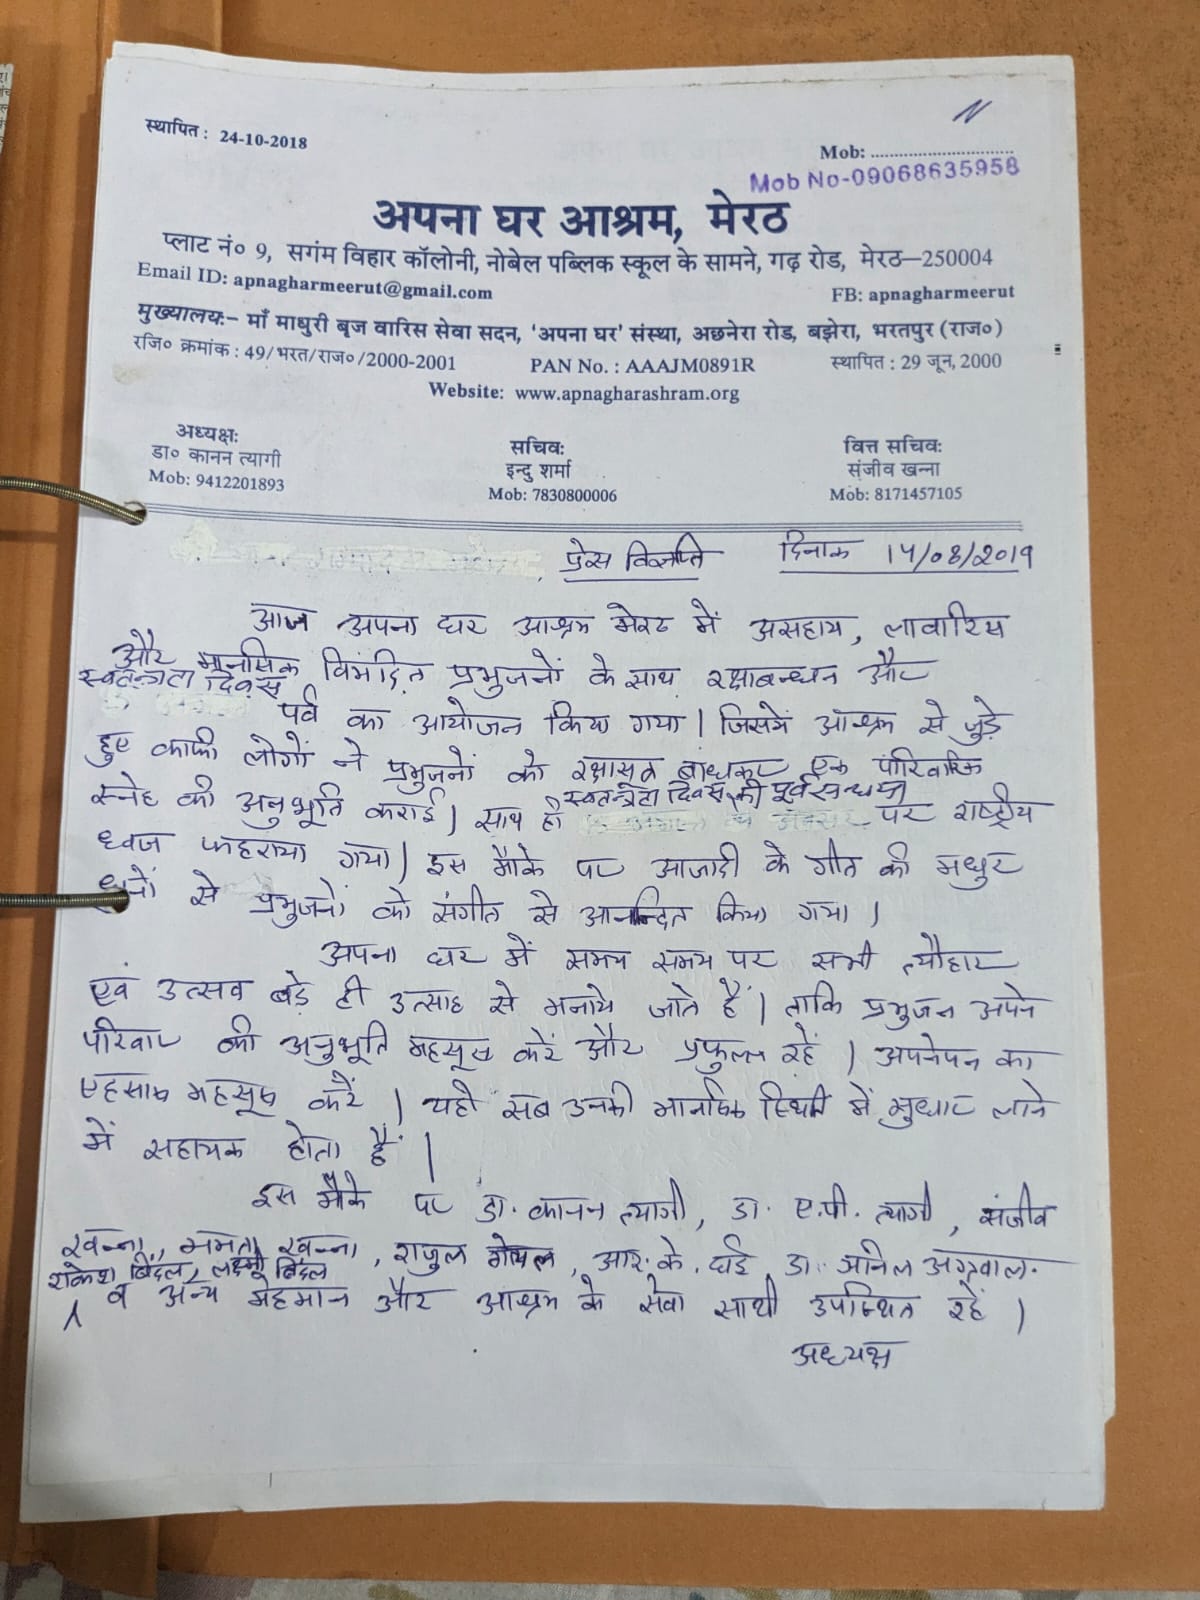 स्थापित : 24-10-2018
Mob: ..............................
Mob No-09068635958
अपना घर आश्रम, मेरठ
प्लाट नं० 9, सगंम विहार कॉलोनी, नोबेल पब्लिक स्कूल के सामने, गढ़ रोड, मेरठ–250004
Email ID: apnagharmeerut@gmail.com FB: apnagharmeerut
मुख्यालयः– माँ माधुरी बृज वारिस सेवा सदन, 'अपना घर' संस्था, अछनेरा रोड, बझेरा, भरतपुर (राज०)
रजि० क्रमांक : 49/भरत/राज०/2000-2001 PAN No. : AAAJM0891R स्थापित : 29 जून, 2000
Website: www.apnagharashram.org
अध्यक्षः सचिवः वित्त सचिवः
डा० कानन त्यागी इन्दु शर्मा संजीव खन्ना
Mob: 9412201893 Mob: 7830800006 Mob: 8171457105
प्रेस विज्ञप्ति दिनाक 14/08/2019
आज अपना घर आश्रम मेरठ में असहाय, लावारिस
और मानसिक विमंदित प्रभुजनों के साथ रक्षाबन्धन और
स्वतन्त्रता दिवस
पर्व का आयोजन किया गया। जिसमें आश्रम से जुड़े
हुए काफी लोगों ने प्रभुजनों को रक्षासूत्र बाधकर एक पारिवारिक
स्नेह की अनुभूति कराई। साथ ही स्वतन्त्रता दिवस की पूर्व सन्धया पर राष्ट्रीय
ध्वज फहराया गया। इस मौके पर आजादी के गीत की मधुर
धुनों से प्रभुजनों को संगीत से आनन्दित किया गया।
अपना घर में समय समय पर सभी त्यौहार
एवं उत्सव बड़े ही उत्साह से मनाये जाते हैं। ताकि प्रभुजन अपने
परिवार की अनुभूति महसूस करें और प्रफुल्ल रहें। अपनेपन का
एहसास महसूस करें। यही सब उनकी मानसिक स्थिति में सुधार लाने
में सहायक होता हैं।
इस मौके पर डा. कानन त्यागी, डा. ए.पी. त्यागी, संजीव
खन्ना, ममता खन्ना, राजुल गोयल, आर.के. डा. अनिल अग्रवाल.
राकेश बिंदल, लक्ष्मी बिंदल
व अन्य मेहमान और आश्रम के सेवा साथी उपस्थित रहें।
अध्यक्ष